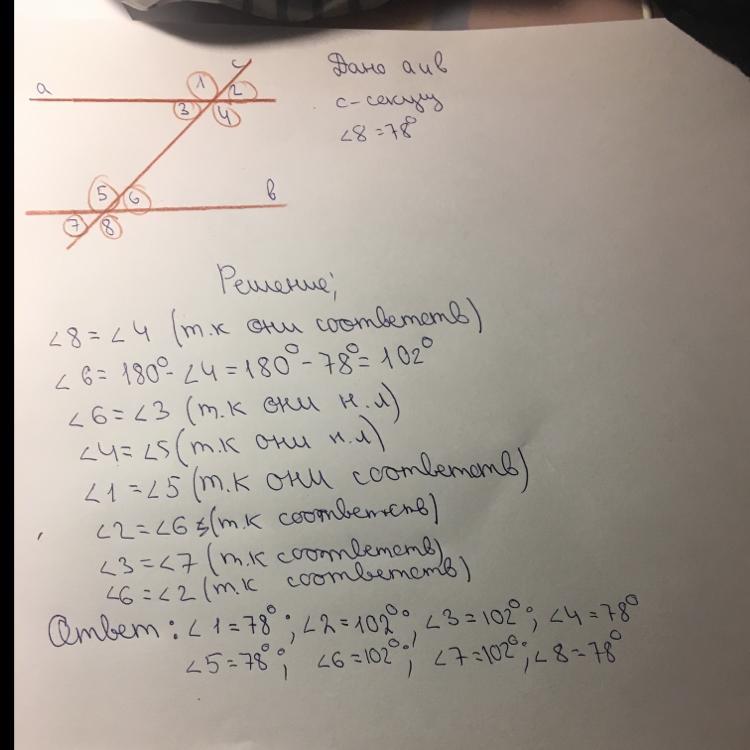 a
c
1
2
3
4
5
6
7
8
в
Дано а и в
с - секущ
∠8 = 78°
Решение;
∠8 = ∠4 (т.к они соответств)
∠6 = 180° - ∠4 = 180° - 78° = 102°
∠6 = ∠3 (т.к они н.л)
∠4 = ∠5 (т.к они н.л)
∠1 = ∠5 (т.к они соответств)
∠2 = ∠6 (т.к соответств)
∠3 = ∠7 (т.к соответств)
∠6 = ∠2 (т.к соответств)
Ответ: ∠1 = 78°; ∠2 = 102°; ∠3 = 102°; ∠4 = 78°
∠5 = 78°; ∠6 = 102°; ∠7 = 102°; ∠8 = 78°